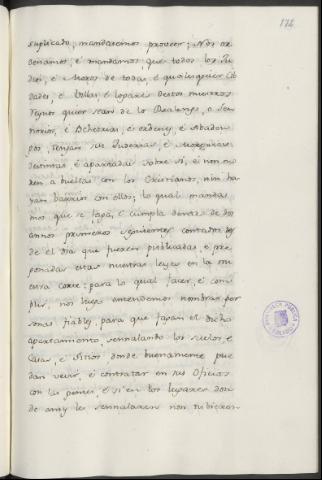 172
suplicado, mandaremos proveer; Nos or
denamos, é mandamos que todos los Ju
dios, é Moros de todas, é qualesquier Cib
dades, é Villas é logares destos nuestros
Regnos quier sean de lo Realengo, o Sen
norios, é Behetrias, é ordenes, é Abaden
gos, tengan sus Juderias, é Morerias
destintas é apartadas sobre sí, é non mo
ren a bueltas con los Christianos, nin ha
yan barrios con ellos; lo qual manda
mos que se faga, é cumpla dentro de dos
annos primeros siguientes contados des
de el dia que fueren publicadas, é pre
gonadas estas nuestras leyes en la nu
estra Corte: para lo qual facer, é com
plir, nos luego entendemos nombrar per
sonas fiables, para que fagan el dicho
apartamiento, sennalando los suelos, e
Casas, é Sitios donde buenamente pue
dan vevir, é contratar en sus Oficios
con las gentes, é si en los logares don
de ansy les sennalaren non tubieren